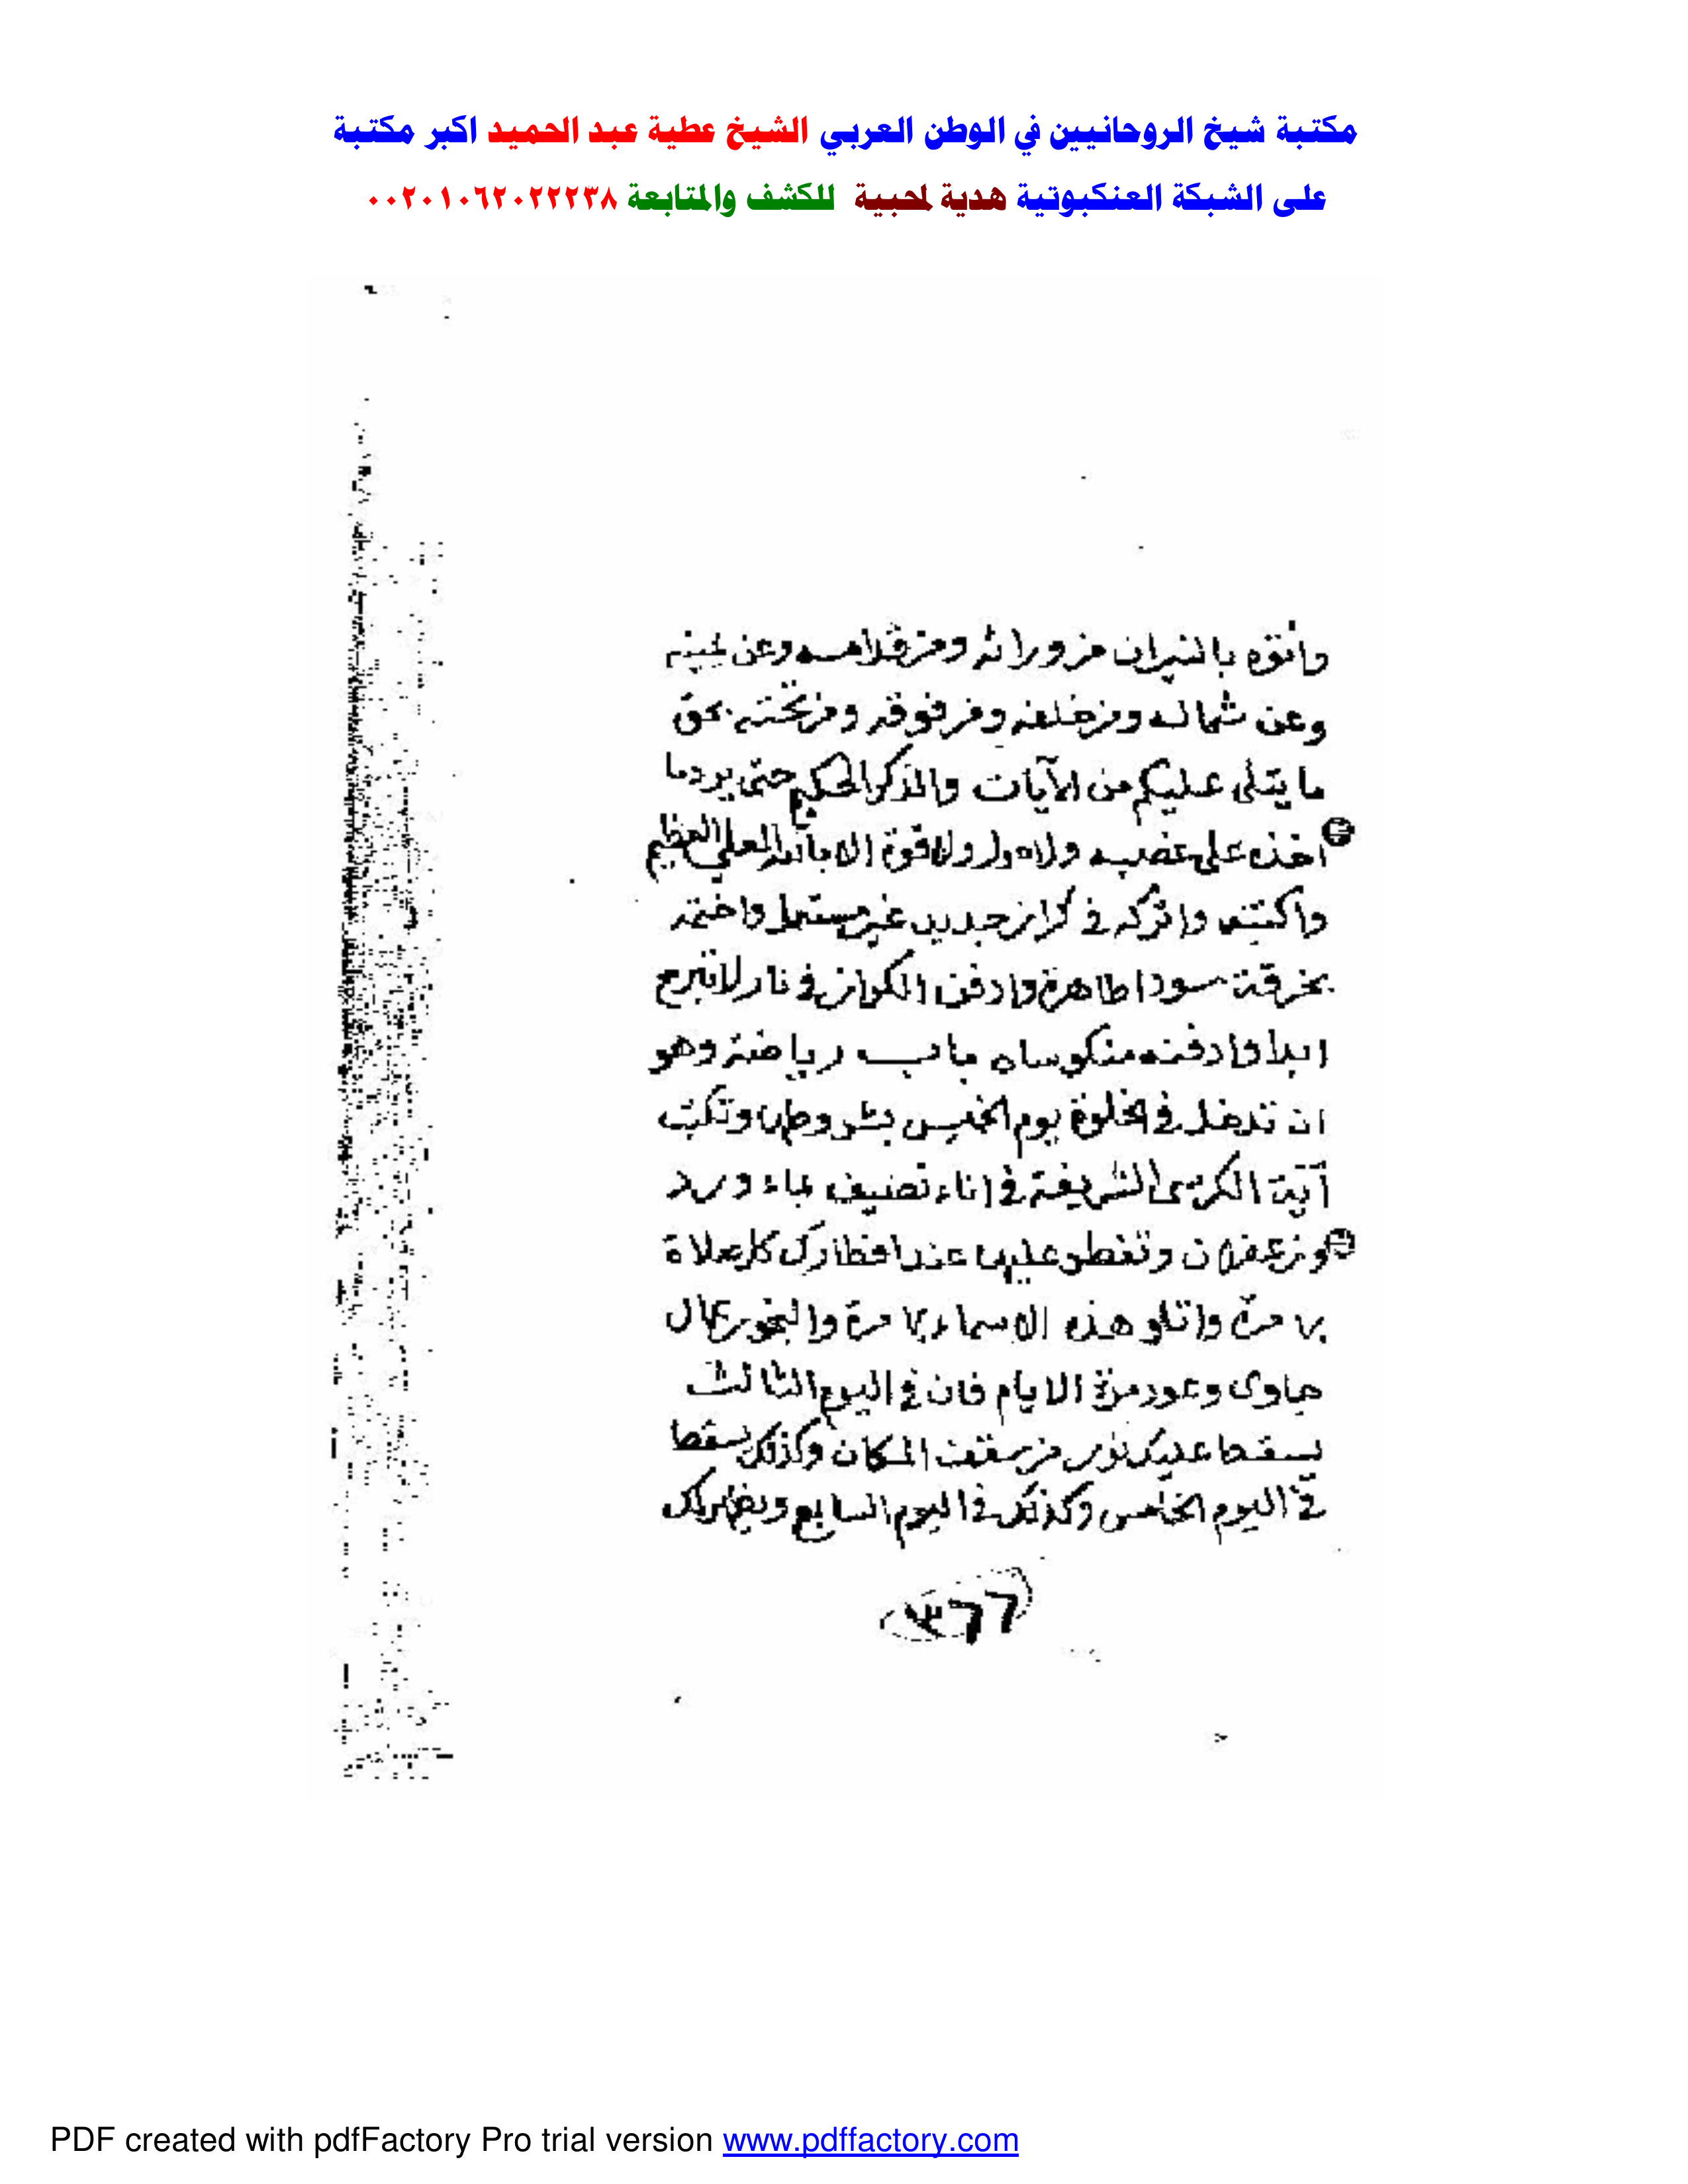 مكتبة شيخ الروحانيين في الوطن العربي الشيخ عطية عبد الحميد اكبر مكتبة
على الشبكة العنكبوتية هدية لمحبية للكشف والمتابعة ٠٠٢٠١٠٦٢٠٢٢٢٣٨
وأتوه بالنيران من ورائه ومن قدامه وعن يمينه
وعن شماله ومن خلفه ومن فوقه ومن تحته بحق
ما يتلى عليكم من الآيات والذكر الحكيم حتى يرد ما
اخذه على غضبه ولا حول ولا قوة الا بالله العلي العظيم
واكتبه واتركه في كراز جديد غير مستعمل واختمه
بخرقة سودا طاهرة وادفن الكواز في نار لا تبرح
ابدا وادفنه منكوسا ه باب رياضة وهو
ان تدخل في الخلوة يوم الخميس بشروطها وتكتب
آية الكرسى الشريفة في اناء نضيف بماء ورد
وزعفران وتفطر عليها عند افطارك كل صلاة
مرة واتلو هذه الاسماء مرة والبخور عمال
جاوى وعود مدة الايام فان في اليوم الثالث
يسقط عليك نور من سقف المكان وكذلك يسقط
في اليوم الخامس وكذلك في اليوم السابع ويظهر لك
٣٦٦
PDF created with pdfFactory Pro trial version www.pdffactory.com